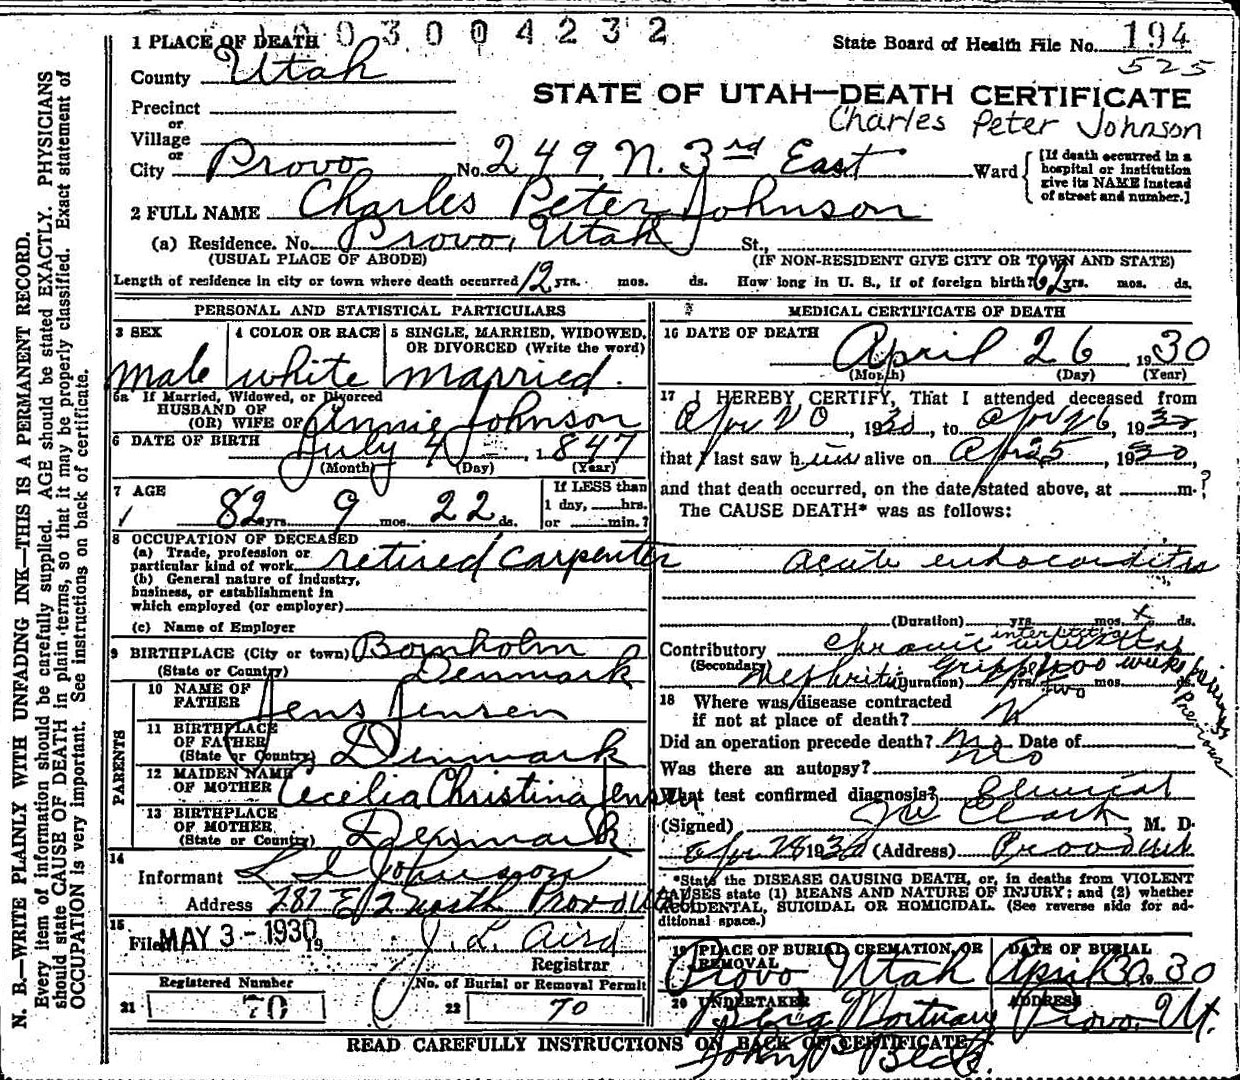 003004232
1 PLACE OF DEATH
State Board of Health File No. 194
525
County Utah
STATE OF UTAH—DEATH CERTIFICATE
Charles Peter Johnson
Precinct
or
Village
or
City Provo No. 249 N. 3rd East Ward
[If death occurred in a hospital or institution give its NAME instead of street and number.]
2 FULL NAME Charles Peter Johnson
(a) Residence. No. Provo, Utah St.,
(USUAL PLACE OF ABODE) (IF NON-RESIDENT GIVE CITY OR TOWN AND STATE)
Length of residence in city or town where death occurred 12 yrs. mos. ds. How long in U. S., if of foreign birth? 62 yrs. mos. ds.
PERSONAL AND STATISTICAL PARTICULARS
3 SEX
male
4 COLOR OR RACE
white
5 SINGLE, MARRIED, WIDOWED, OR DIVORCED (Write the word)
married.
5a If Married, Widowed, or Divorced
HUSBAND OF
(OR) WIFE OF Annie Johnson
6 DATE OF BIRTH July 4 1847
(Month) (Day) (Year)
7 AGE
82 yrs. 9 mos. 22 ds.
If LESS than
1 day, hrs.
or min.?
8 OCCUPATION OF DECEASED
(a) Trade, profession or
particular kind of work retired carpenter
(b) General nature of industry,
business, or establishment in
which employed (or employer)
(c) Name of Employer
9 BIRTHPLACE (City or town) Bornholm
(State or Country) Denmark
PARENTS
10 NAME OF
FATHER Jens Jensen
11 BIRTHPLACE
OF FATHER
(State or Country) Denmark
12 MAIDEN NAME
OF MOTHER Cecelia Christina Jensen
13 BIRTHPLACE
OF MOTHER
(State or Country) Denmark
14
Informant L S Johnson
Address 287 E 2 North Provo Utah
15
Filed MAY 3 - 1930 19 J. L. Aird
Registrar
Registered Number
21 70
No. of Burial or Removal Permit
22 70
MEDICAL CERTIFICATE OF DEATH
16 DATE OF DEATH
April 26 1930
(Month) (Day) (Year)
17 I HEREBY CERTIFY, That I attended deceased from
Apr 20, 1930, to Apr 26, 1930,
that I last saw him alive on Apr 25, 1930,
and that death occurred, on the date stated above, at m.?
The CAUSE DEATH* was as follows:
Acute endocarditis
(Duration) yrs. mos. ds.
Contributory chronic interstitial
(Secondary) Nephritis Grippe two weeks previous
(Duration) yrs. mos. ds.
18 Where was disease contracted
if not at place of death?
Did an operation precede death? No Date of
Was there an autopsy? No
What test confirmed diagnosis? Clinical
(Signed) J W Clark M. D.
Apr 28 1930 (Address) Provo Utah
*State the DISEASE CAUSING DEATH, or, in deaths from VIOLENT
CAUSES state (1) MEANS AND NATURE OF INJURY; and (2) whether
ACCIDENTAL, SUICIDAL OR HOMICIDAL. (See reverse side for ad-
ditional space.)
19 PLACE OF BURIAL, CREMATION, OR REMOVAL
Provo Utah
DATE OF BURIAL
April 30 1930
20 UNDERTAKER
Berg Mortuary
ADDRESS
Provo, Ut.
READ CAREFULLY INSTRUCTIONS ON BACK OF CERTIFICATE
N. B.—WRITE PLAINLY WITH UNFADING INK—THIS IS A PERMANENT RECORD.
Every item of information should be carefully supplied. AGE should be stated EXACTLY. PHYSICIANS
should state CAUSE OF DEATH in plain terms, so that it may be properly classified. Exact statement of
OCCUPATION is very important. See instructions on back of certificate.